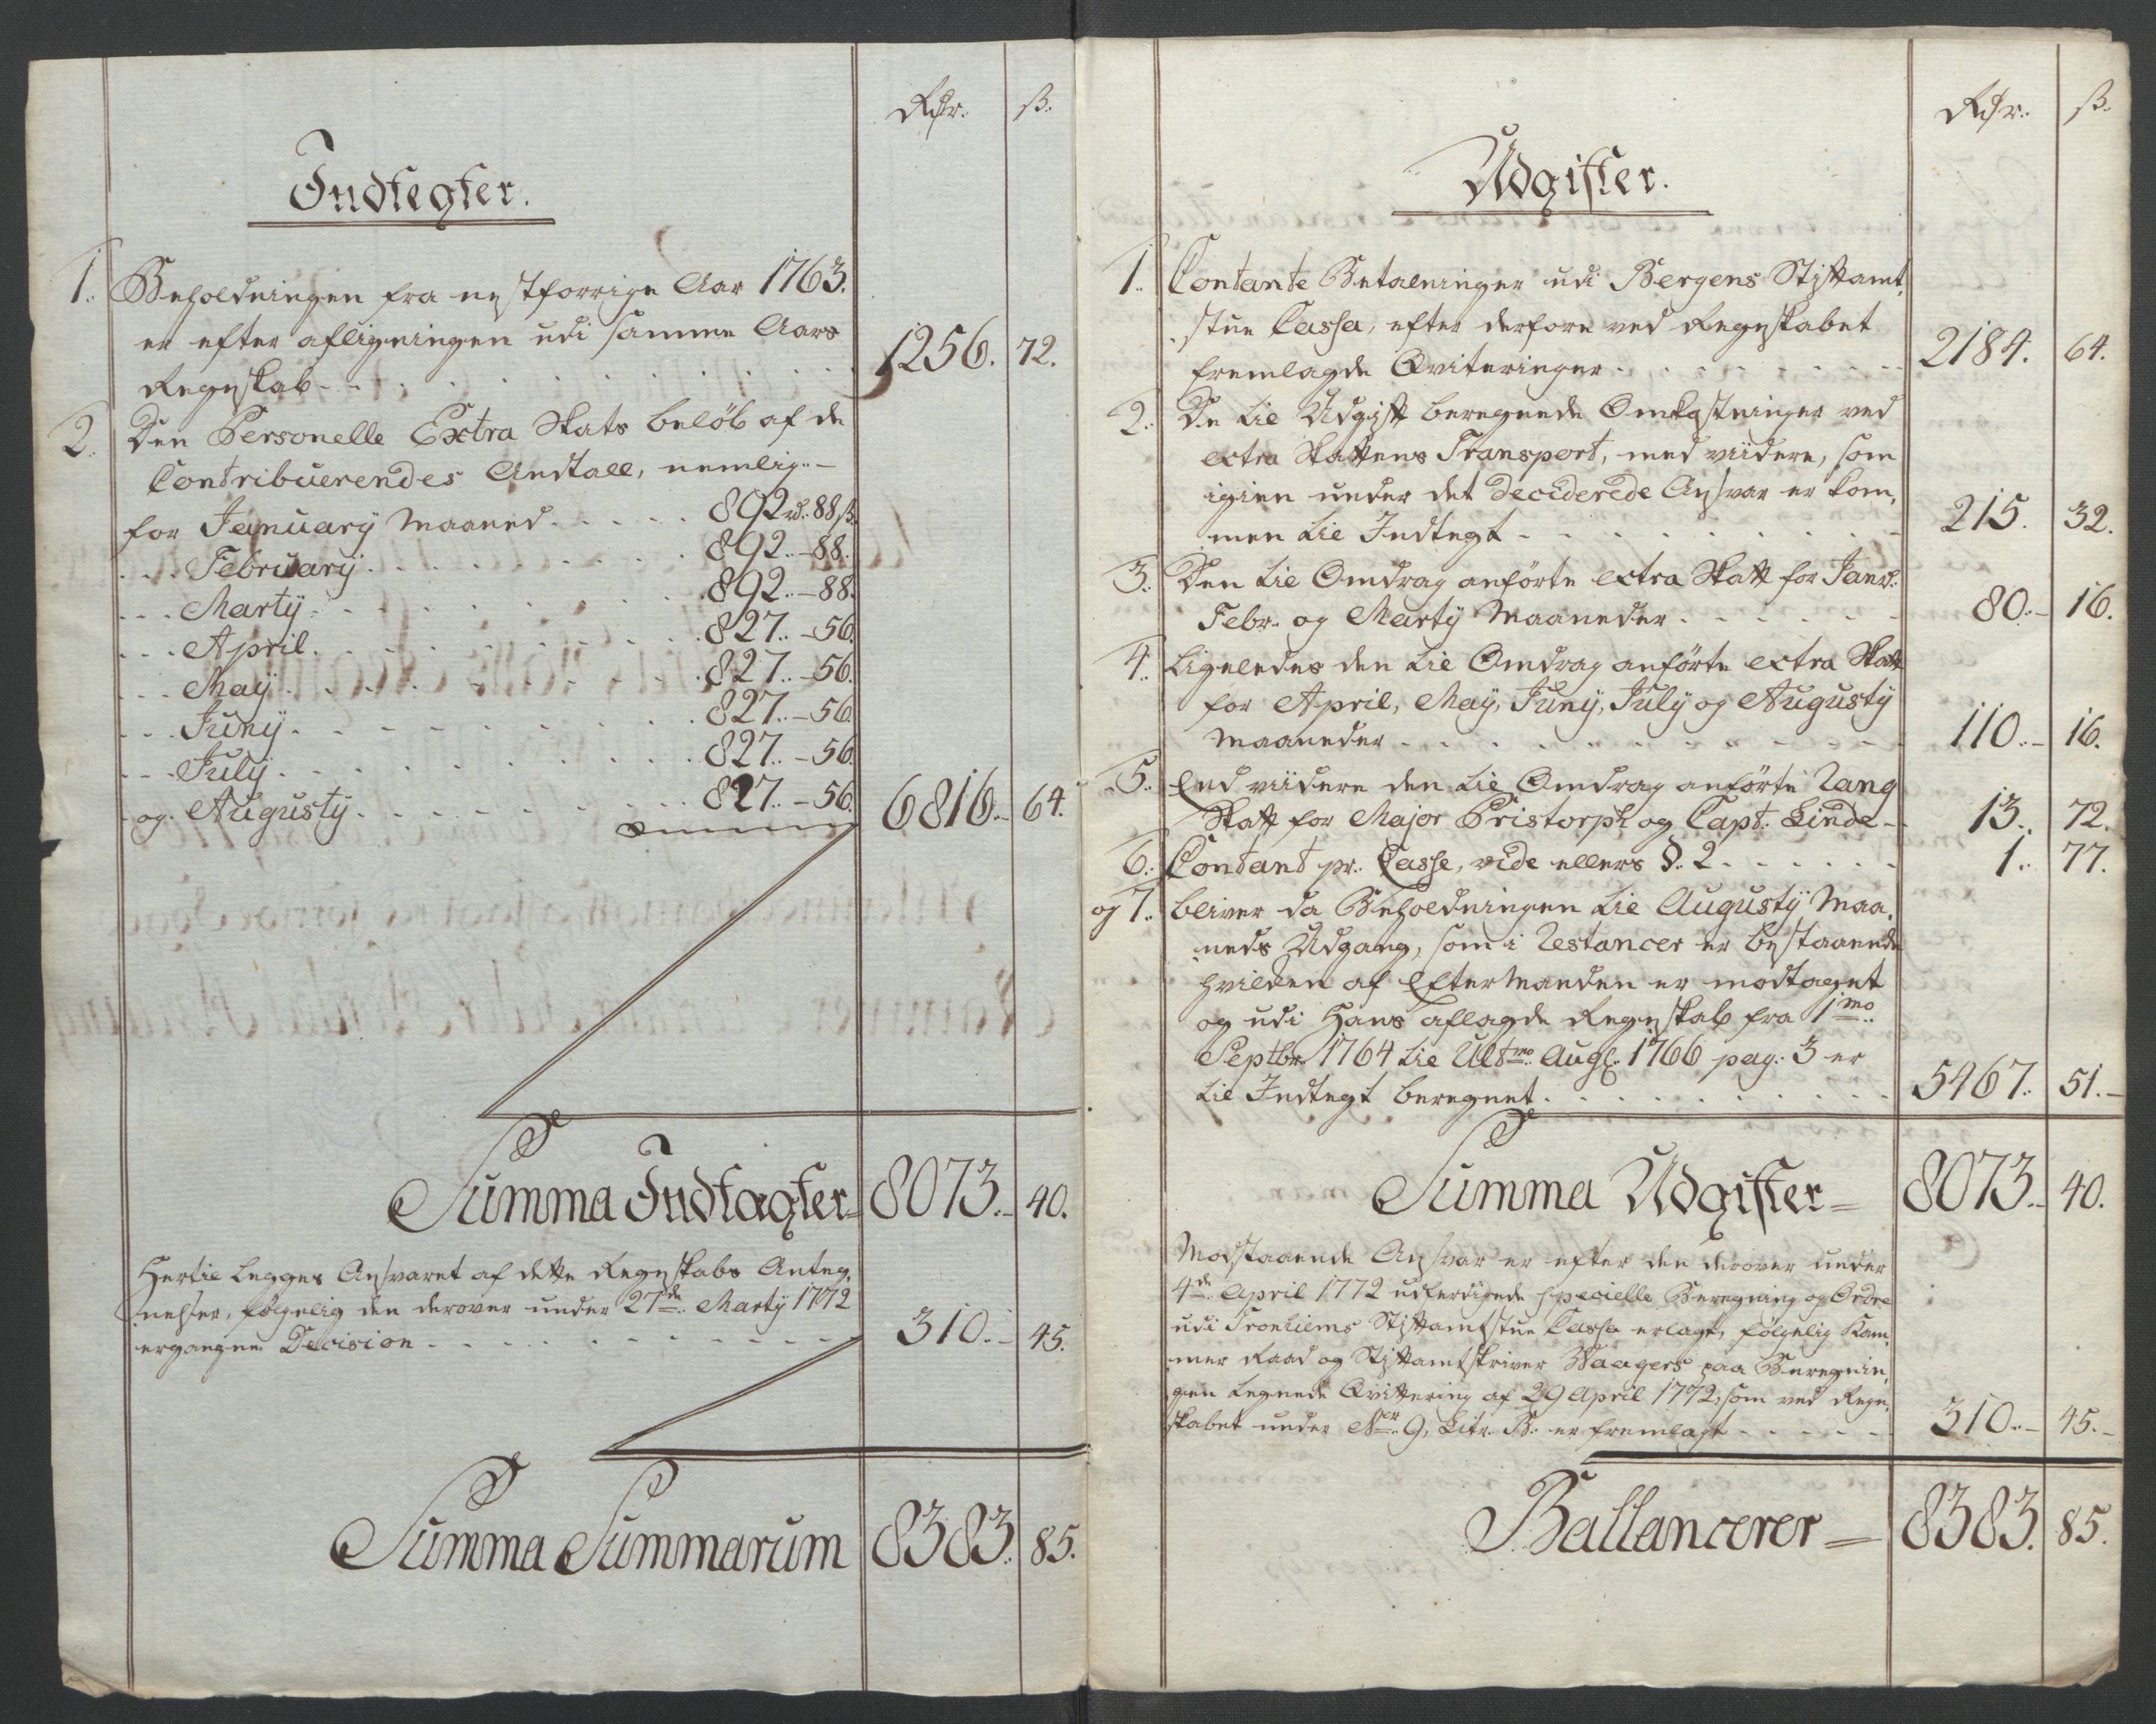 Rdr. ß.
Indtegter.
1. Beholdningen fra nestforrige Aar 1763.
er efter afligningen udi samme Aars
Regnskab - - - 1256. 72.
2. Den Personelle Extra Skats beløb af de
Contribuerendes Andtall, nemlig. -
for January Maaned - - - 892 rd. 88 ß.
- - - February - - - 892. - 88.
- - - Marty - - - 892. - 88.
- - - April - - - 827. - 56.
- - - May - - - 827. - 56.
- - - Juny - - - 827. - 56.
- - - July - - - 827. - 56.
- og Augusty - - - 827. - 56. 6816. - 64.
Summa Indtægter = 8073. - 40.
Hertil legges Ansvaret af dette Regnskabs Anteg,
nelser, følgelig den derover under 27de Marty 1772
ergangne Decision - - - 310. - 45.
Summa Summarum 8383. 85.
Rdr. ß.
Udgifter.
1. Contante Betalninger udi Bergens Stiftamt,
stue Cassa, efter derfore ved Regnskabet
fremlagde Qviteringer - - - 2184. 64.
2. De til Udgift beregnede Omkostninger ved
extra Skattens Transport, med viidere, som
igien under det deciderede Ansvar er kom,
men til Indtegt - - - 215. 32.
3. Den til Omdrag anførte extra Skatt for Janr.
Febr. og Marty Maaneder - - - 80. - 16.
4. Ligeledes den til Omdrag anførte extra Skatt
for April, May, Juny, July og Augusty
Maaneder - - - 110. - 16.
5. End viidere den til Omdrag anførte Rang
Skatt for Major Pristorph og Capt. Linde - 13. 72.
6. Contant pr. Casse, vide ellers §. 2 - - - 1. 77.
og 7. bliver da Beholdningen til Augusty Maa,
neds Udgang, som i Restancer er bestaaende
hvilken af Eftermanden er modtaget
og udi Hans aflagde Regnskab fra 1mo
Septbr. 1764 til Ultmo Aug. 1766 pag. 3 er
til Indtegt beregnet - - - 5467. 51. -
Summa Udgifter = 8073. - 40.
Modstaaende Ansvar er efter den derover under
4de April 1772 udferdigede specielle Beregning og Ordre
udi Tronhiems Stiftamtstue Cassa erlagt, følgelig Kam,
mer Raad og Stiftamtskriver Waagers paa Beregnin,
gen tegnede Qvittering af 29 April 1772, som ved Regn,
skabet under Ner. 9, Litr. B. er fremlagt - - - 310. - 45. -
Ballancerer = 8383. 85.